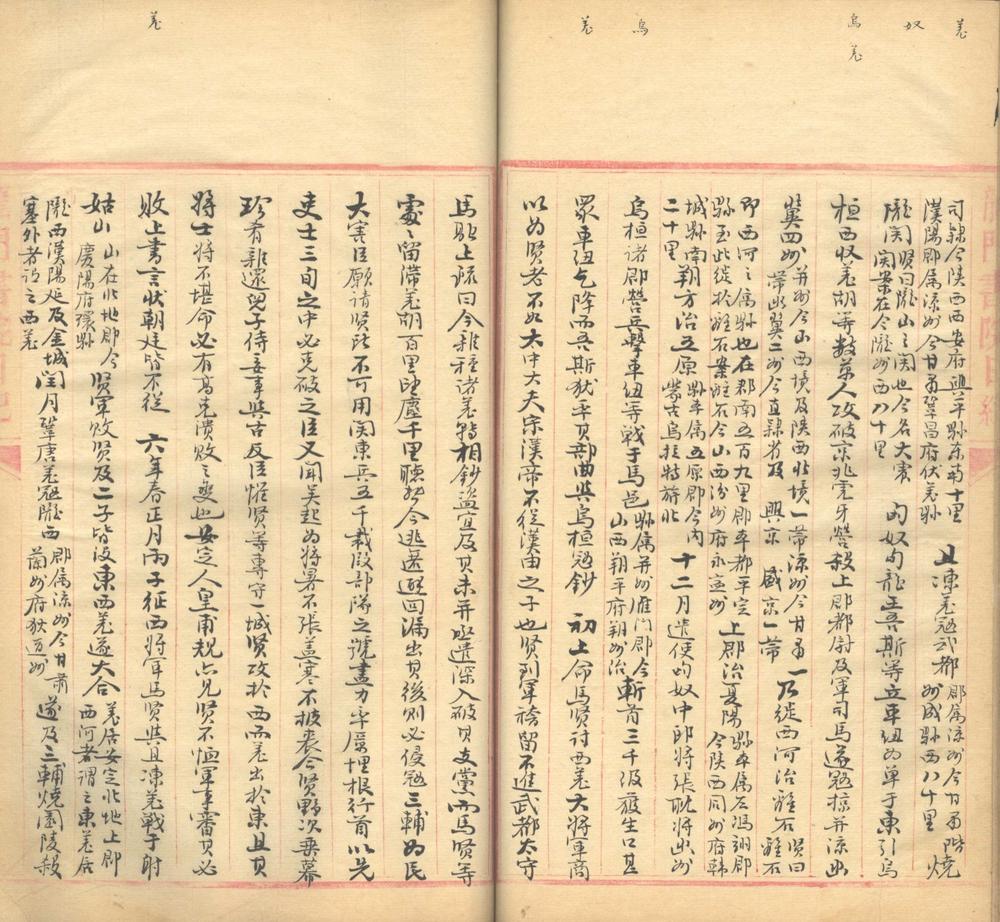 羌
奴
烏
羌
烏
羌
羌
司隸今陝西西安府興平縣東南十里
漢陽郡屬涼州今甘肅鞏昌府伏羌縣
且凍羌寇武都
郡屬涼州今甘肅階
州成縣西八十里
燒
隴關
賢曰隴山之關也今名大震
關案在今隴州西八十里
匈奴句龍王吾斯等立車紐為單于東引烏
桓西收羌胡等數萬人攻破京兆虎牙營殺上郡都尉及軍司馬遂寇掠并涼幽
冀四州
并州今山西境及陝西北境一帶涼州今甘肅一
帶幽冀二州今直隸省及興京盛京一帶
乃徙西河治離石
賢曰
離石
即西河之屬縣也在郡南五百九里郡本都平定
縣至此徙於離石案離石今山西汾州府永寧州
上郡治夏陽
縣本屬左馮翊郡
今陝西同州府韓
城縣南
朔方治五原
縣本屬五原郡今內
蒙古烏拉特旗北
二十里
十二月遣使匈奴中郎將張耽將幽州
烏桓諸郡營兵擊車紐等戰于馬邑
縣屬并州雁門郡今
山西朔平府朔州治
斬首三千級獲生口甚
眾車紐乞降而吾斯猶率其部曲與烏桓寇鈔 初上命馬賢討西羌大將軍商
以為賢老不如太中大夫宋漢帝不從漢由之子也賢到軍稽留不進武都太守
馬融上疏曰今雜種諸羌轉相鈔盜宜及其未并亟遣深入破其支黨而馬賢等
處々留滯羌胡百里望塵千里聽聲今逃匿避回漏出其後則必侵寇三輔為民
大害臣願請賢所不可用關東兵五千裁假部隊之號盡力率厲埋根行首以先
吏士三旬之中必克破之臣又聞吳起為將暑不張蓋寒不披裘今賢野次垂幕
珍肴雜遝兒子侍妾事與古反臣懼賢等專守一城賢攻於西而羌出於東且其
將士將不堪命必有高克潰敗之變也安定人皇甫規亦見賢不恤軍事審其必
敗上書言狀朝廷皆不從 六年春正月丙子征西將軍馬賢與且凍羌戰于射
姑山
山在北地郡今
慶陽府環縣
賢軍敗賢及二子皆沒東西羌遂大合
羌居安定北地上郡
西河者謂之東羌居
隴西漢陽延及金城
塞外者謂之西羌
閏月鞏唐羌寇隴西
郡屬涼州今甘肅
蘭州府狄道州
遂及三輔燒園陵殺